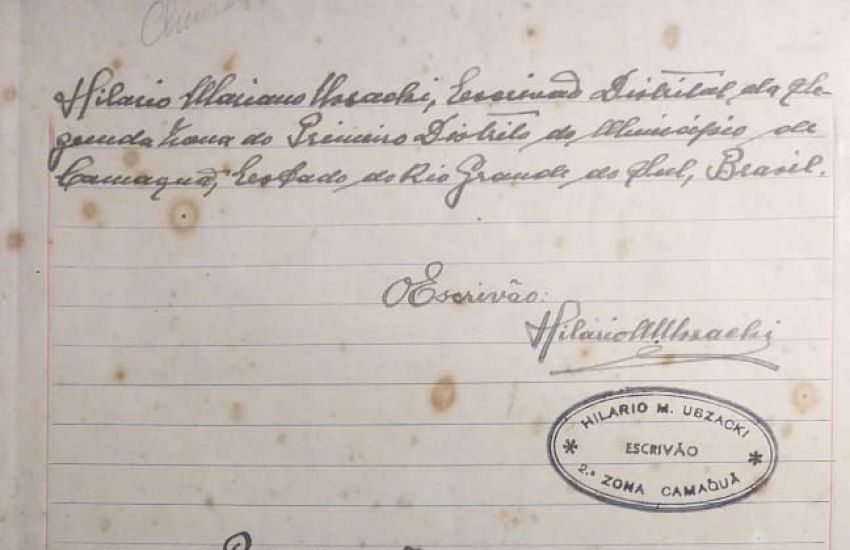 Hilario Mariano Uszacki, Escrivão Distrital da Se-
gunda Zona do Primeiro Distrito do Município de
Camaquã, Estado do Rio Grande do Sul, Brasil.
O Escrivão:
Hilario M Uszacki
HILARIO M. USZACKI
* ESCRIVÃO *
2.ª ZONA CAMAQUÃ